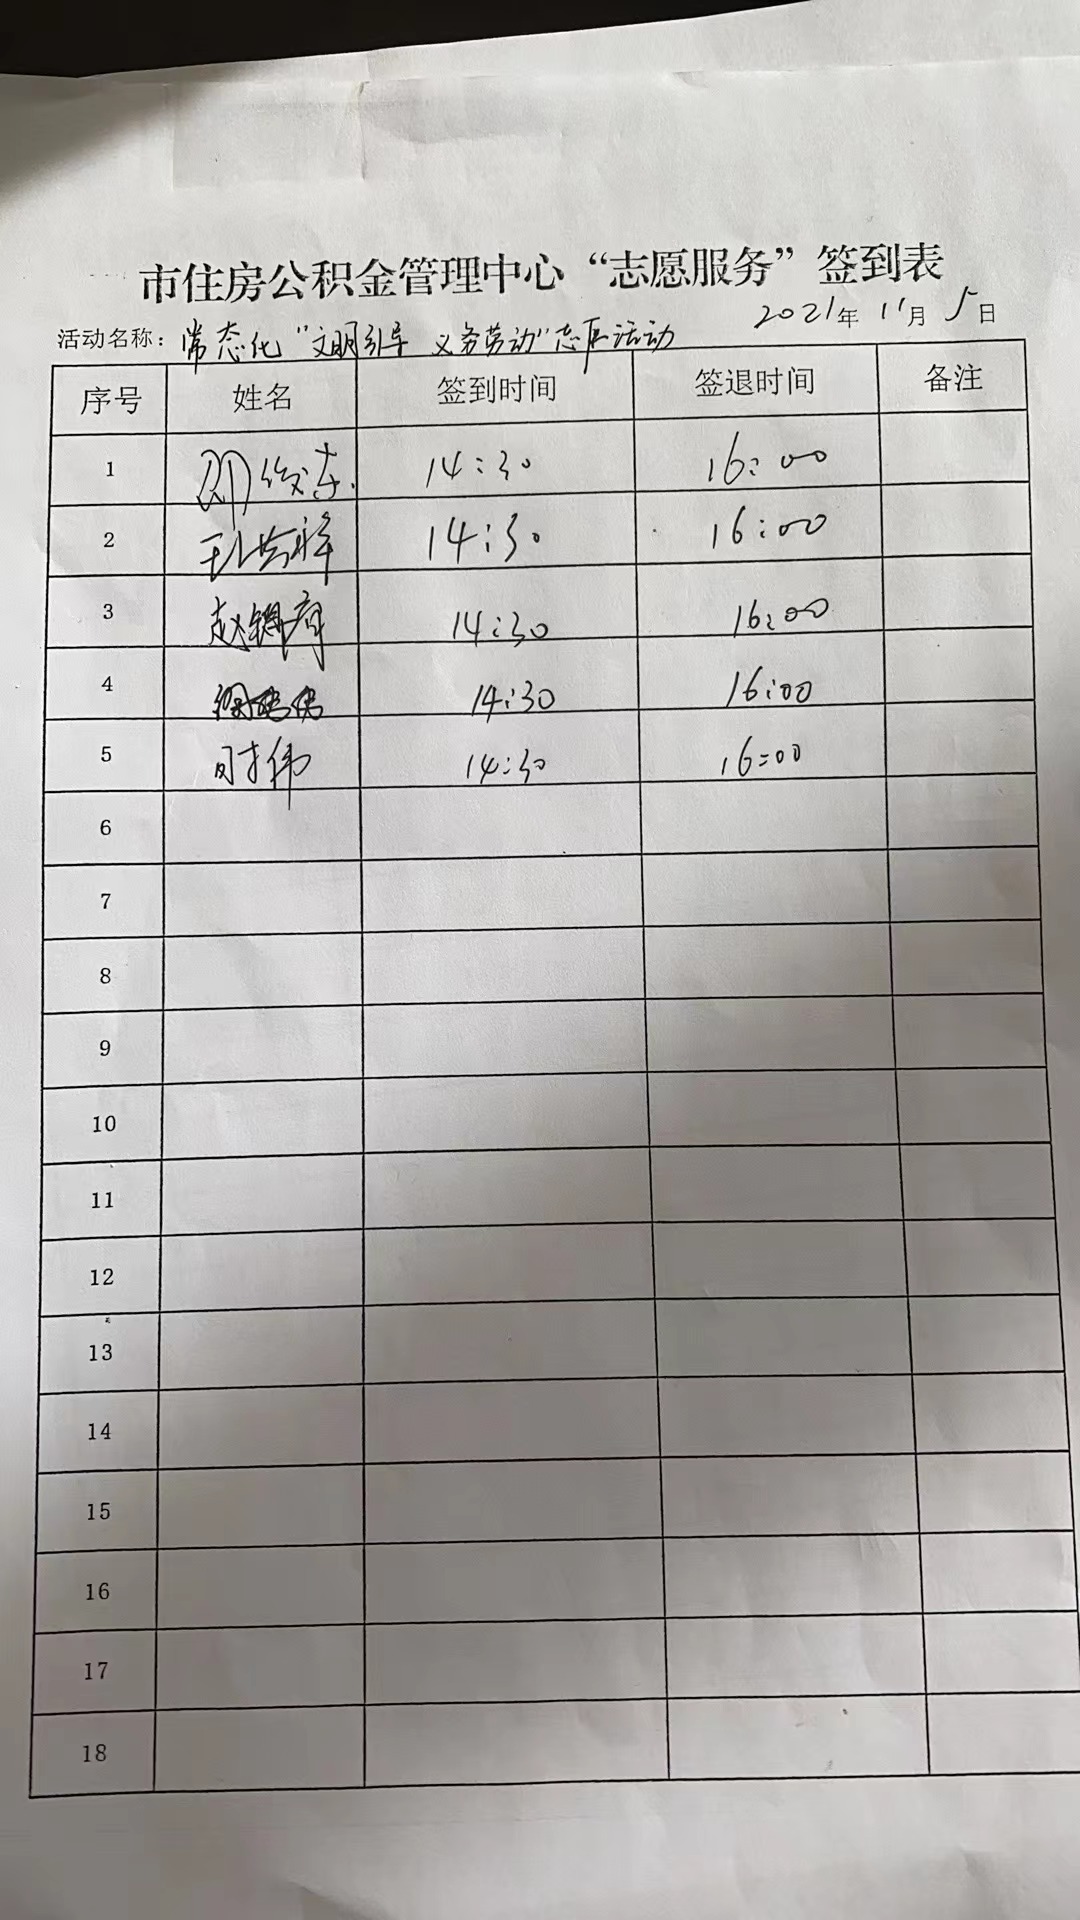 市住房公积金管理中心“志愿服务”签到表
2021年 11月 5日
活动名称：常态化“文明引导 义务劳动”志愿活动
序号 姓名 签到时间 签退时间 备注
1 14:30 16:00
2 14:30 16:00
3 赵 14:30 16:00
4 14:30 16:00
5 时伟 14:30 16:00
6
7
8
9
10
11
12
13
14
15
16
17
18